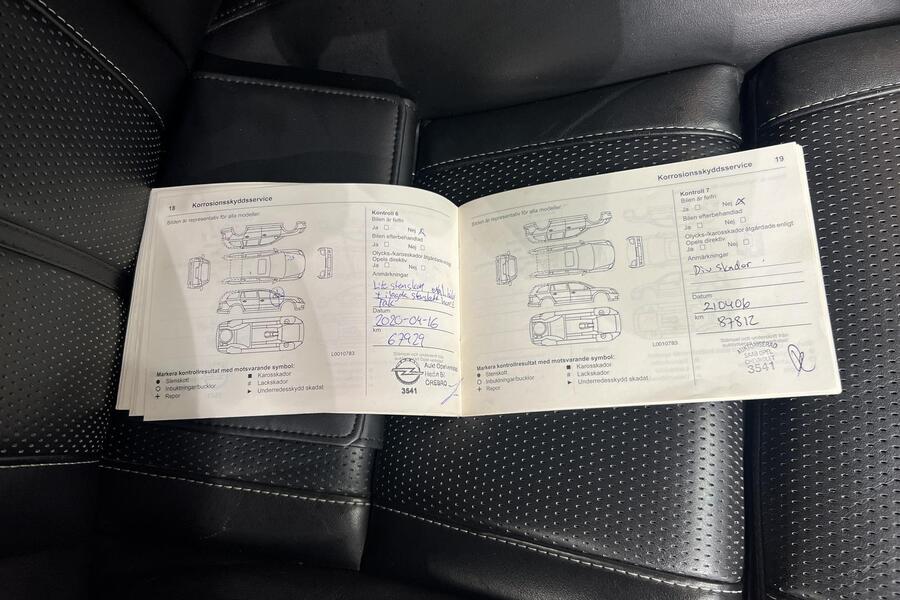 18 Korrosionsskyddsservice
Bilden är representativ för alla modeller.
Kontroll 6
Bilen är felfri
Ja Nej X
Bilen efterbehandlad
Ja Nej
Olycks-/karosskador åtgärdade enligt
Opels direktiv
Ja Nej
Anmärkningar
Lite stenskott
tak
Datum
2020-04-16
km
67929
L0010783
Markera kontrollresultat med motsvarande symbol:
● Stenskott
○ Inbuktningar/bucklor
+ Repor
■ Karosskador
# Lackskador
► Underredesskydd skadat
Stämpel och underskrift
Hedin Bil
ÖREBRO
3541
Korrosionsskyddsservice 19
Bilden är representativ för alla modeller.
Kontroll 7
Bilen är felfri
Ja Nej X
Bilen efterbehandlad
Ja Nej
Olycks-/karosskador åtgärdade enligt
Opels direktiv
Ja Nej
Anmärkningar
Div skador
Datum
210406
km
87812
L0010783
Markera kontrollresultat med motsvarande symbol:
● Stenskott
○ Inbuktningar/bucklor
+ Repor
■ Karosskador
# Lackskador
► Underredesskydd skadat
Stämpel och underskrift från
SAAB OPEL
CHEVROLET
3541